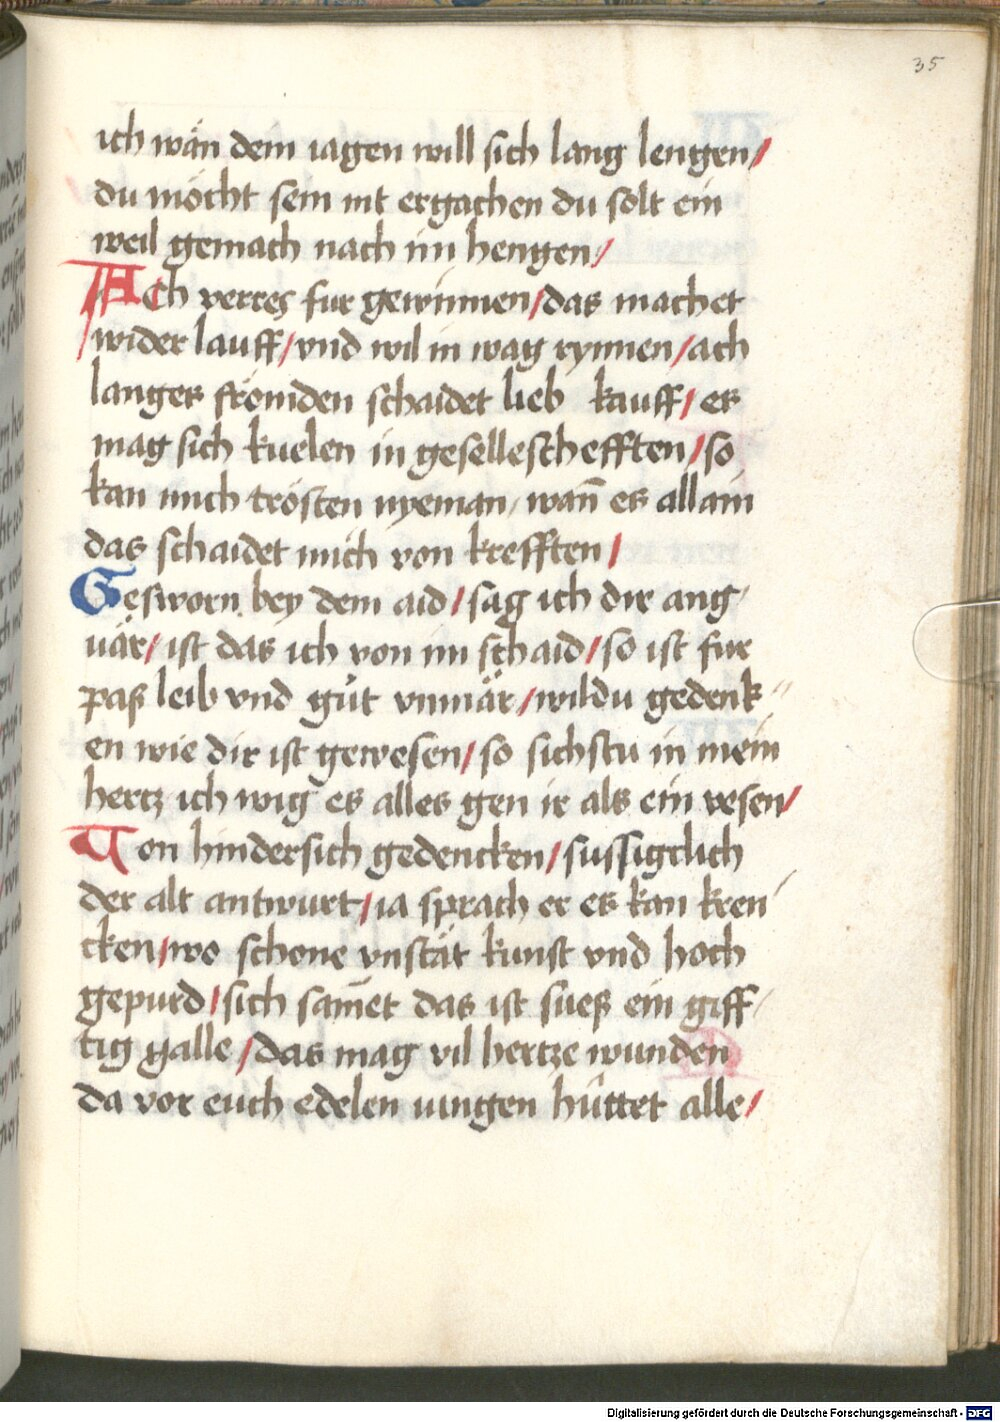 35
ich wän dem iagen will sich lang lengen/
du möcht sein nit ergachen du solt ein
weil gemach nach im hengen/
Ach verres fur gewinnen/das machet
wider lauff/vnd wil in wag rynnen/ach
langes frömden schaidet lieb kauff/er
mag sich kuelen in geselleschefften/so
kan mich trösten nyeman/wañ es allain
das schaidet mich von krefften/
Gesworn bey dem aid/sag ich dir ang/
uär/ist das ich von im schaid/so ist fur
paß leib vnd gůt vnmär/wildu gedenk
en wie dir ist gewesen/so sichstu in mein
hertz ich wig es alles gen ir als ein vesen/
Von hindersich gedencken/sussigclich
der alt antwurt/ia sprach er es kan kren/
cken/wo schone vnstät kunst vnd hoch
gepurd/sich sam̄et das ist sueß ein giff/
tig galle/das mag vil hertze wunden
da vor euch edelen iungen hüttet alle/
Digitalisierung gefördert durch die Deutsche Forschungsgemeinschaft - DFG